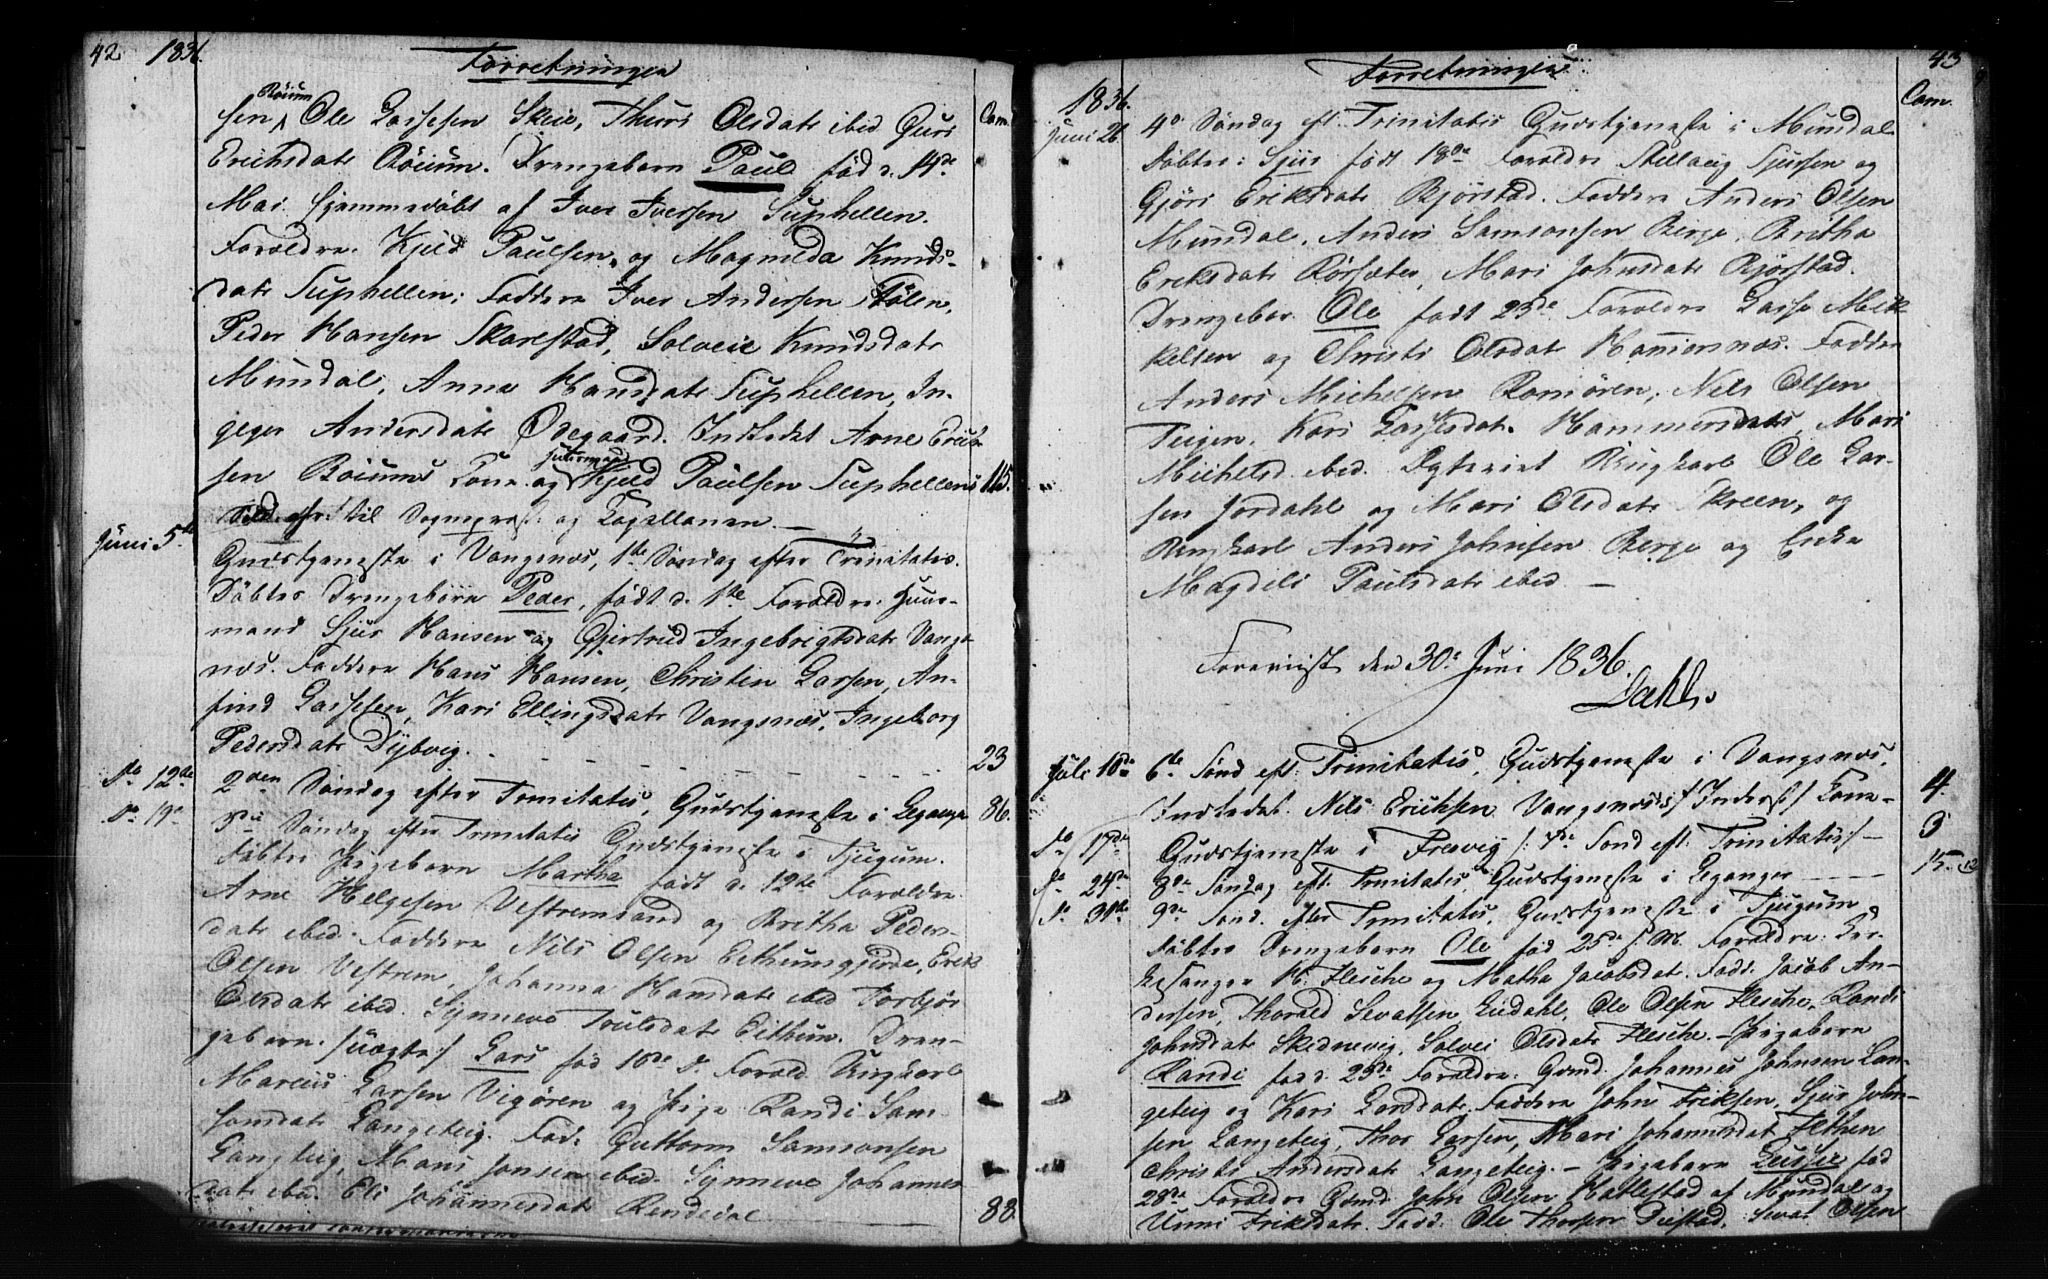 42 1836. Forretninger
Röium
sen Ole Lassesen Skeie, Thuri Olsdatr ibid Guri
Com.
Erichsdatr Röium. Drengebarn Paul fød d. 14de
Mai hjemmedöbt af Iver Iversen Suphellen.
Forældre. Kjeld Paulsen og Magnilda Knuds-
datr Suphellen; Faddere Iver Andersen Stölen,
Peder Hansen Skarestad, Solveie Knudsdatr
Mundal, Anna Hansdatr Suphellen, In-
geger Andersdatr Ödegaard. Indledet Arne Erik
sen Röiums Kone og Huusmand Kjeld Paulsen Suphellens 115.
til Sognepræst og Capellanen. —
Juni 5te
Gudstjeneste i Vangsnæs, 1ste Söndag efter Trinitatis.
Döbtes Drengebarn Peder, født d. 1ste Forældre: Huus-
mand Sjur Hansen og Gjertrud Ingebrigtsdatr Vangs
næs. Faddere Hans Hansen, Christen Larsen, An-
find Lassesen, Kari Ellingsdatr Vangsnæs, Ingeborg
Pedersdatr Dybvig. 23
do 12te 2den Söndag efter Trinitatis, Gudstjeneste i Leganger 86.
do 19de 3die Söndag efter Trinitatis Gudstjeneste i Tjugum.
Döbtes Pigebarn Martha født d. 12te Forældre
Arne Helgesen Vestremsand og Britha Peders-
datr ibid. Faddere Nils Olsen Eithungjerde, Erik
Olsen Vestrem, Johanna Hansdatr ibid Torbjör
Olsdatr ibid. Synneve Poulsdatr Eithun. Dren-
gebarn /:uægte:/ Lars fød 10de d. Foræld Ungkarl
Marcus Larsen Vigören og Pige Randi Sam-
sondatr Langeteig. Fad: Guttorm Samsonsen
Langteig, Mons Jonsen ibid. Synneve Johannes
datr ibid. Eli Johannesdatr Rendedal 88
43
Forretninger
1836.
Com.
Juni 26 4de Söndag eft. Trinitatis Gudstjeneste i Mundal
Döbtes: Sjur født 18de Forældre Stellaug Sjursen og
Gjöri Eriksdatr Bjørstad. Faddere Anders Olsen
Mundal, Anders Samsonsen Berge, Britha
Eriksdatr Rörsæter, Mari Johnsdatr Bjørstad.
Drengebar. Ole født 23de Forældre Lasse Mik
kelsen og Christi Olsdatr Hamersnæs. Faddere
Anders Michelsen Romören, Nils Olsen
Teigen, Kari Lassesdatr Hammersnæs, Mari
Michelsd ibid. Ægteviet Ungkarl Ole Lar-
sen Jordahl og Mari Olsdatr Skreen, og
Ungkarl Anders Johnsen Berge og Enke
Magdeli Paulsdatr ibid —
Foreviist den 30te Juni 1836.
Dahl.
Juli 10de 6te Sönd eft. Trinitatis, Gudstjeneste i Vangsnæs.
Indledet. Nils Erichsen Vangsnæs's /:Inderst:/ Kone - 4
do 17de Gudstjeneste i Fresvig /: 7de Sönd eft. Trinitatis:/ - 3
do 24de 8de Söndag eft. Trinitatis, Gudstjeneste i Leganger - - - 15. 12
do 31te 9de Sönd. efter Trinitatis, Gudstjeneste i Tjugum
Döbtes Drengebarn Ole fød 25de f. M. Forældre: Kir-
kesanger Flesche og Matha Jacobsdat. Fadd. Jacob An-
dersen, Thorald Sevatsen Eiedahl, Ole Olsen Flesche, Randi
Johnsdatr Skednevig, Solvei Olsdatr Flesche. - Pigebarn
Randi fød d. 23de Forældre. Gmd. Johannes Johnsen Lan-
geteig og Kari Larsdatr. Faddere John Eriksen, Sjur John-
sen Langeteig, Thor Larsen, Mari Johannesdat. Flethen
Christi Andersdatr Langeteig. - Pigebarn fød
28de Forældre Gmd. John Olsen Hatlestad af Mundal og
Unni Eriksdatr. Fadd. Ole Thorsen Duestad, Sevat Olsen